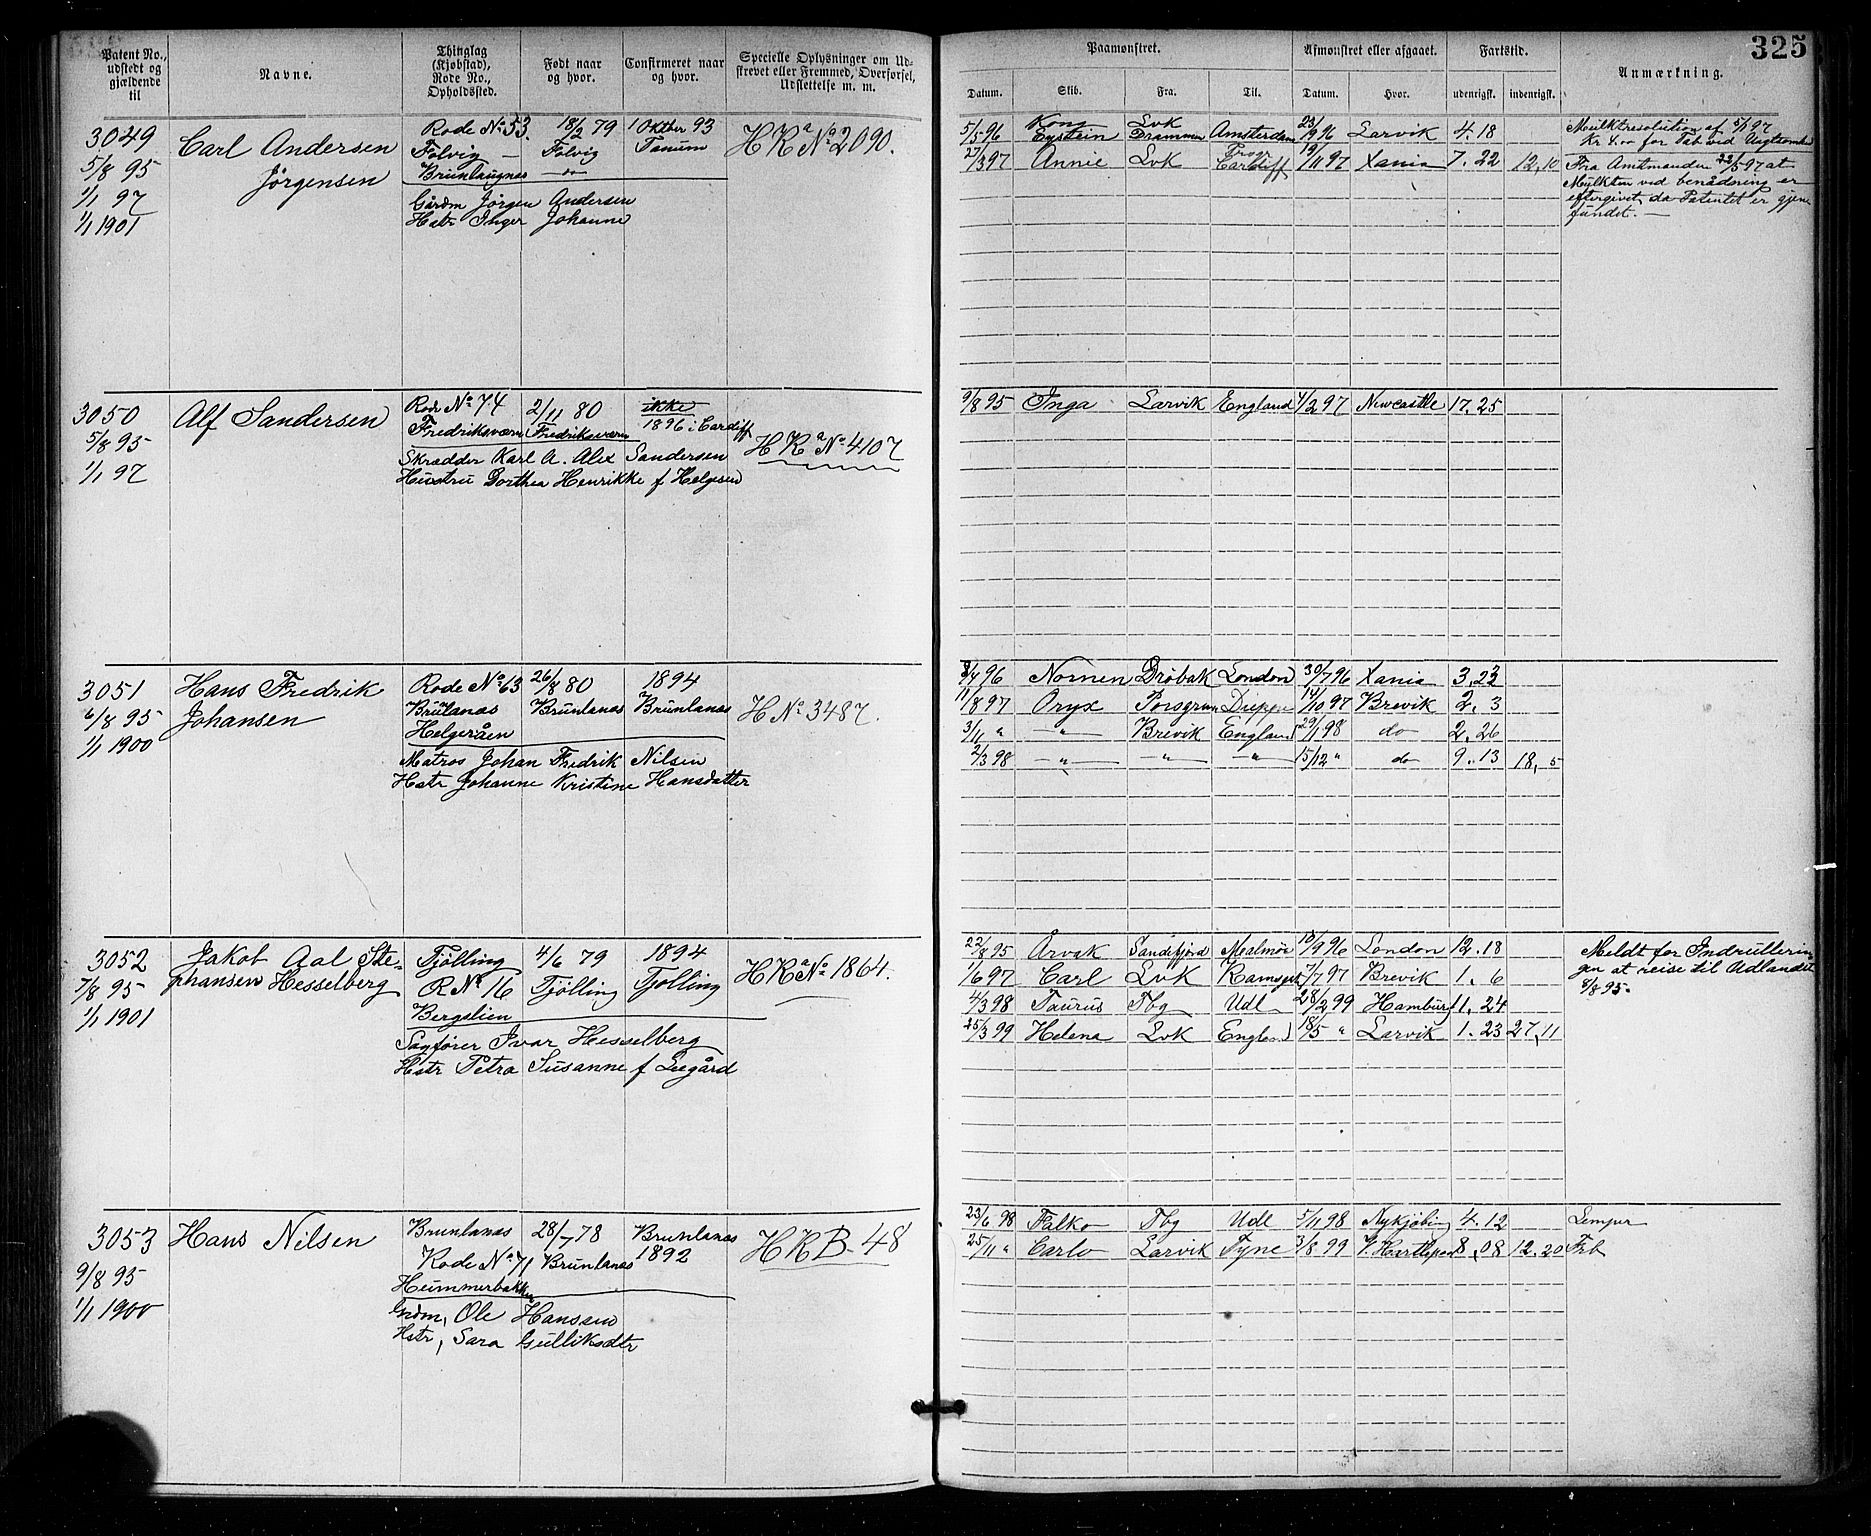 325
Patent No., udstedt og gjældende til
Navne.
Thinglag (Kjøbstad), Rode No., Opholdssted.
Født naar og hvor.
Confirmeret naar og hvor.
Specielle Oplysninger om Udstrevet eller Fremmed, Overførsel, Udslettelse m. m.
Paamønstret.
Afmønstret eller afgaaet.
Fartstid.
Anmærkning.
Datum. Skib. Fra. Til. Datum. Hvor. udenrigsk. indenrigsk.
3049 Carl Andersen Rode No 53. 18/2 79 1 Oktber 93 H R a No 2090.
5/8 95 Jørgensen Folvig — Folvig Tanum
1/1 97 Brunlaugnes —"—
1/1 1901 Gårdm Jörgen Andersen
Hstr Inger Johanne
5/5 96 Kong Eystein Lvk Drammen Amsterdam 23/9 96 Larvik 4.18
27/3 97 Annie Lvk Cardiff 19/11 97 Xania 7.22 12,10
Mulktresolution af 5/1 97
Kr 4.00 for Tab ved Uagtsomhed
Fra Amtmanden 22/5 97 at
Mulkten ved benådning er
eftergivet, da Patentet er gjen
fundet. —
3050 Alf Sandersen Rode No 74 2/11 80 ikke
5/8 95 Fredriksværn Fredriksværn 1896 i Cardiff H R a No 4107
1/1 97 Skrædder Karl A. Alex Sandersen
Hustru Dorthea Henrikke f Helgesen
9/8 95 Inga Larvik England 4/2 97 Newcastle 17.25
3051 Hans Fredrik Rode No 63 26/8 80 1894
6/8 95 Johansen Brunlanas Brunlanas Brunlanas H No 3487.
1/1 1900 Helgeråen
Matros Johan Fredrik Nilsen
Hstr Johanne Kristine Hansdatter
8/4 96 Nornen Dröbak London 30/7 96 Xania 3.23
11/8 97 Oryx Porsgrun Dieppe 14/10 97 Brevik 2.3
3/11 " —"— Brevik England 29/1 98 do 2.26
2/3 98 —"— —"— —"— 15/12 " do 9.13 18,5
3052 Jakob Aal Ste= Tjölling 4/6 79 1894 H R a No 1864.
7/8 95 phansen Hesselberg R No 16 Tjölling Tjolling
1/1 1901 Bergslien
Sagfører Ivar Hesselberg
Hstr Petra Susanne f Leegård
22/8 95 Arvak Sandefjord Mealmø 10/9 96 London 12.18
1/6 97 Carl Lvk Ramsgate 7/7 97 Brevik 1.6
4/3 98 Taurus Tbg Udl 28/2 99 Hamburg 11.24
25/3 99 Helena Lvk England 18/5 " Larvik 1.23 27,11
Meldt for Indrullerin
gen at reise til Udlandet
8/8 95.
3053 Hans Nilsen Brunlanas 28/7 78 Brunlanas H R B - 48
9/8 95 Rode No 71 Brunlanas 1892
1/1 1900 Hummerbakken
Grdm, Ole Hanssen
Hstr, Sara Gulliksdtr
23/6 98 Falko Tbg Udl 5/11 98 Nykjöbing 4.12
25/11 " Carlo Larvik Tyne 3/8 99 V. Hartlepool 8,08 12.20